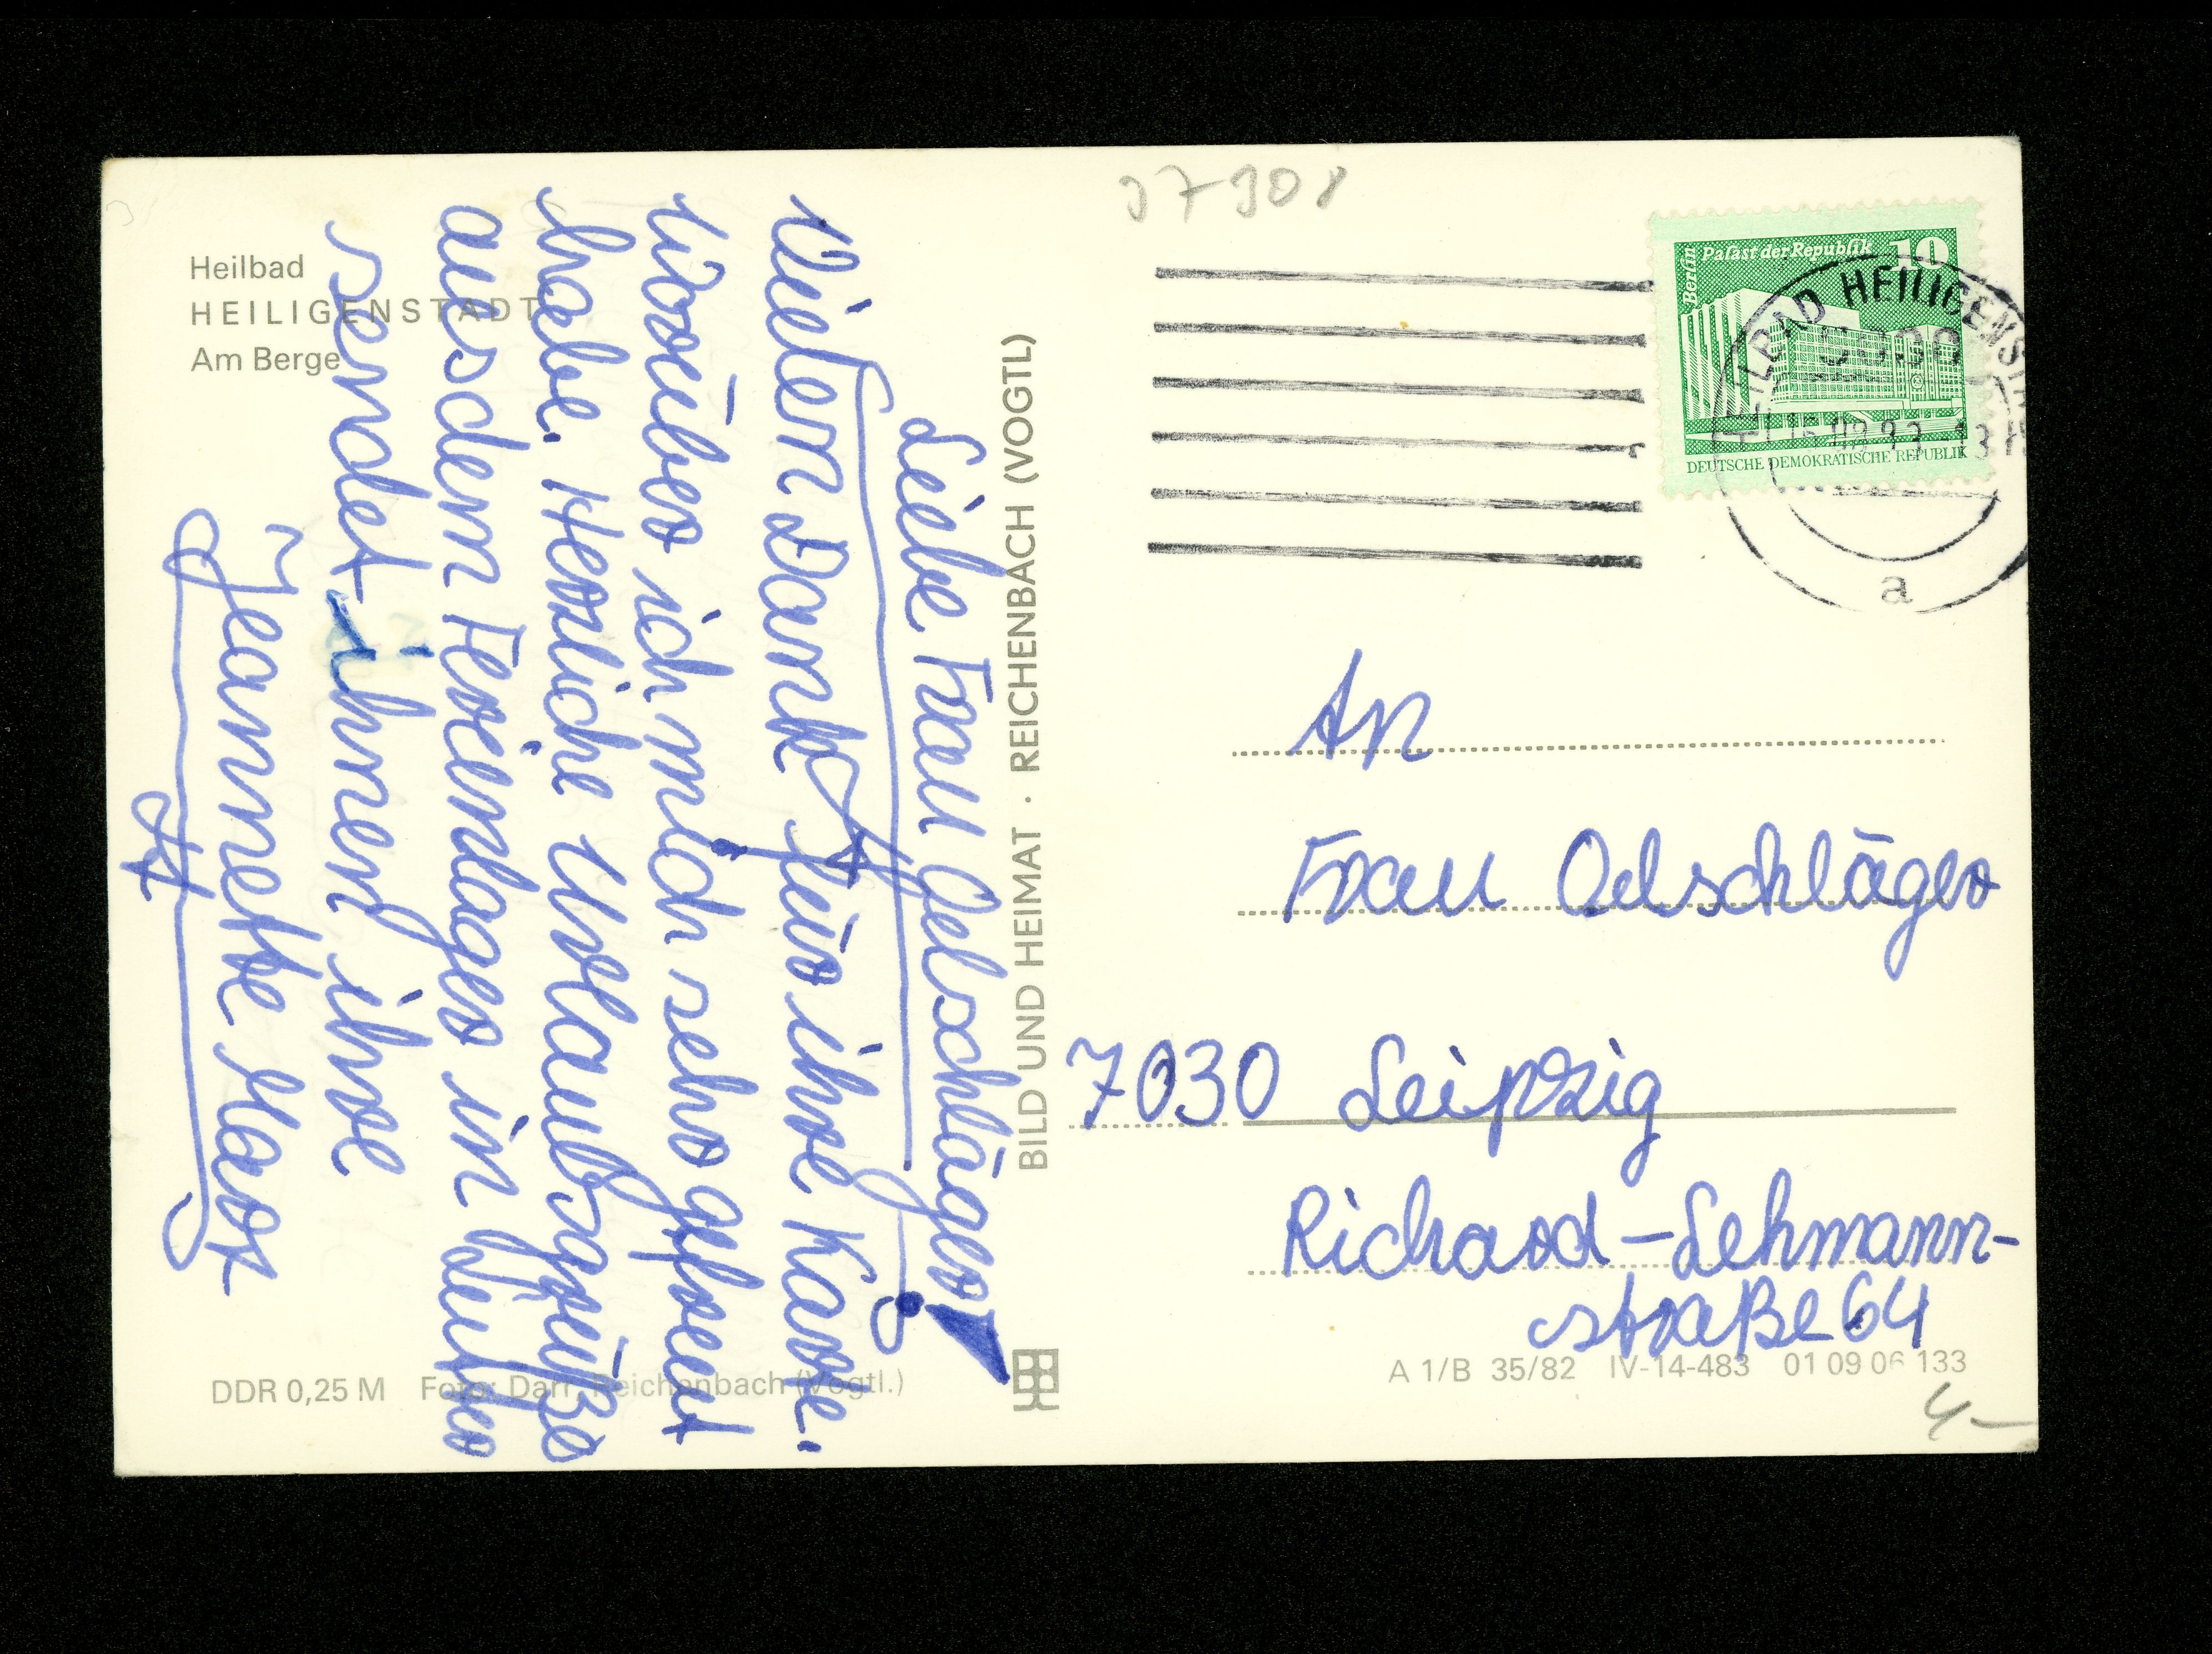 Heilbad
HEILIGENSTADT
Am Berge
Leibe Frau Oelschläger!
Vielen Dank für ihre Karte.
Worüber ich mich sehr gefreut
habe. Herzliche Urlaubsgrüße
aus dem Ferienlager in
sendet ihnen ihre
Jeannette
DDR 0,25 M Foto: Darr, Reichenbach (Vogtl.)
BILD UND HEIMAT · REICHENBACH (VOGTL)
37308
Berlin
Palast der Republik
10
DEUTSCHE DEMOKRATISCHE REPUBLIK
HEILBAD HEILIGENST
a
An
Frau Oelschläger
7030 Leipzig
Richard-Lehmann-
straße 64
A 1/B 35/82 IV-14-483 01 09 06 133
4,-